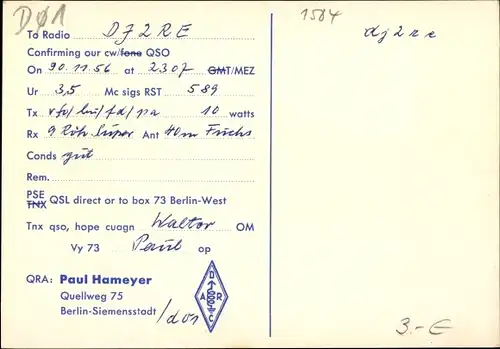 DØ1
To Radio DJ2RE
Confirming our cw/fone QSO
On 90.11.56 at 2307 GMT/MEZ
Ur 3,5 Mc sigs RST 589
Tx vfo/bu/fd/pa 10 watts
Rx 9 Röh. Super Ant 40m Fuchs
Conds gut
Rem.
PSE
TNX QSL direct or to box 73 Berlin-West
Tnx qso, hope cuagn Walter OM
Vy 73 Paul op
QRA: Paul Hameyer
Quellweg 75
Berlin-Siemensstadt /d01
D
A R
C
1504
dj2re
3.-€